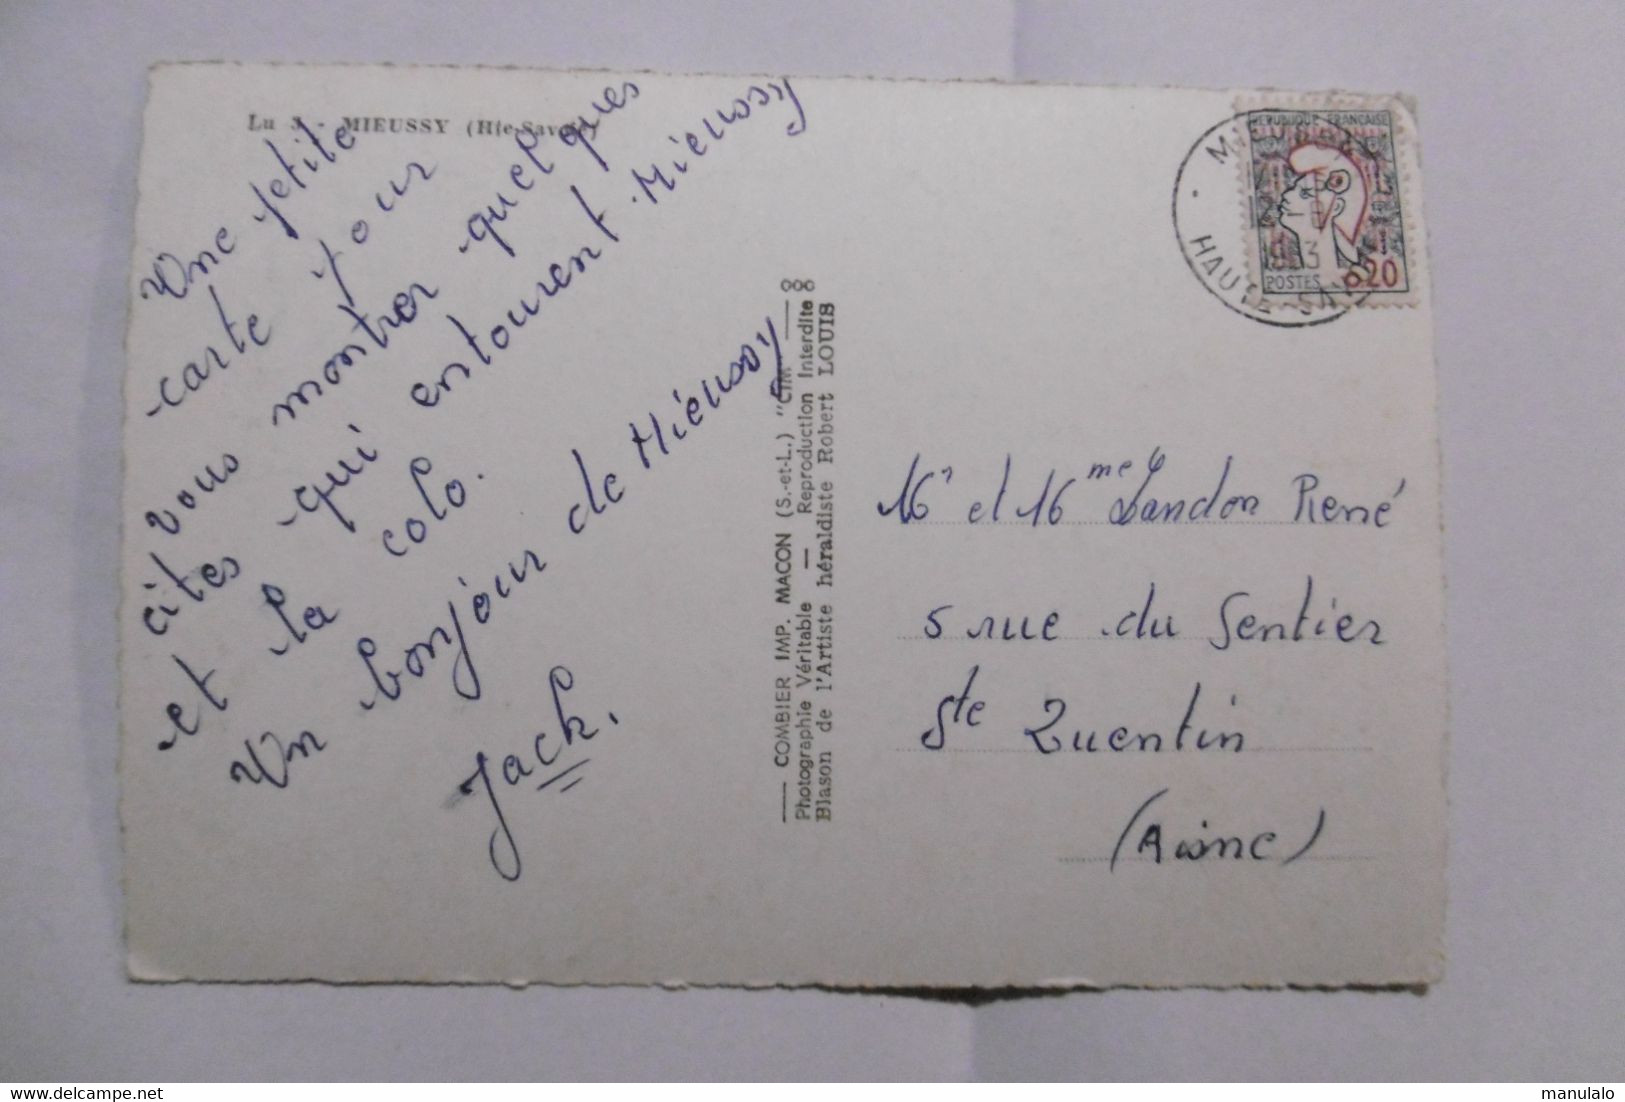 Lu 3 - MIEUSSY (Hte-Savoie)
Une petite
carte pour
vous montrer quelques
cites qui entourent Mieussy
et la colo.
Un bonjour de Mieussy
Jack.
COMBIER IMP. MACON (S.-et-L.) "CIM"
Photographie Véritable — Reproduction Interdite
Blason de l'Artiste héraldiste Robert LOUIS
REPUBLIQUE FRANÇAISE
POSTES 0,20
MIEUSSY
HAUTE-SAVOIE
et
René
5 rue du Sentier
Ste Quentin
(Aisne)
manulalo